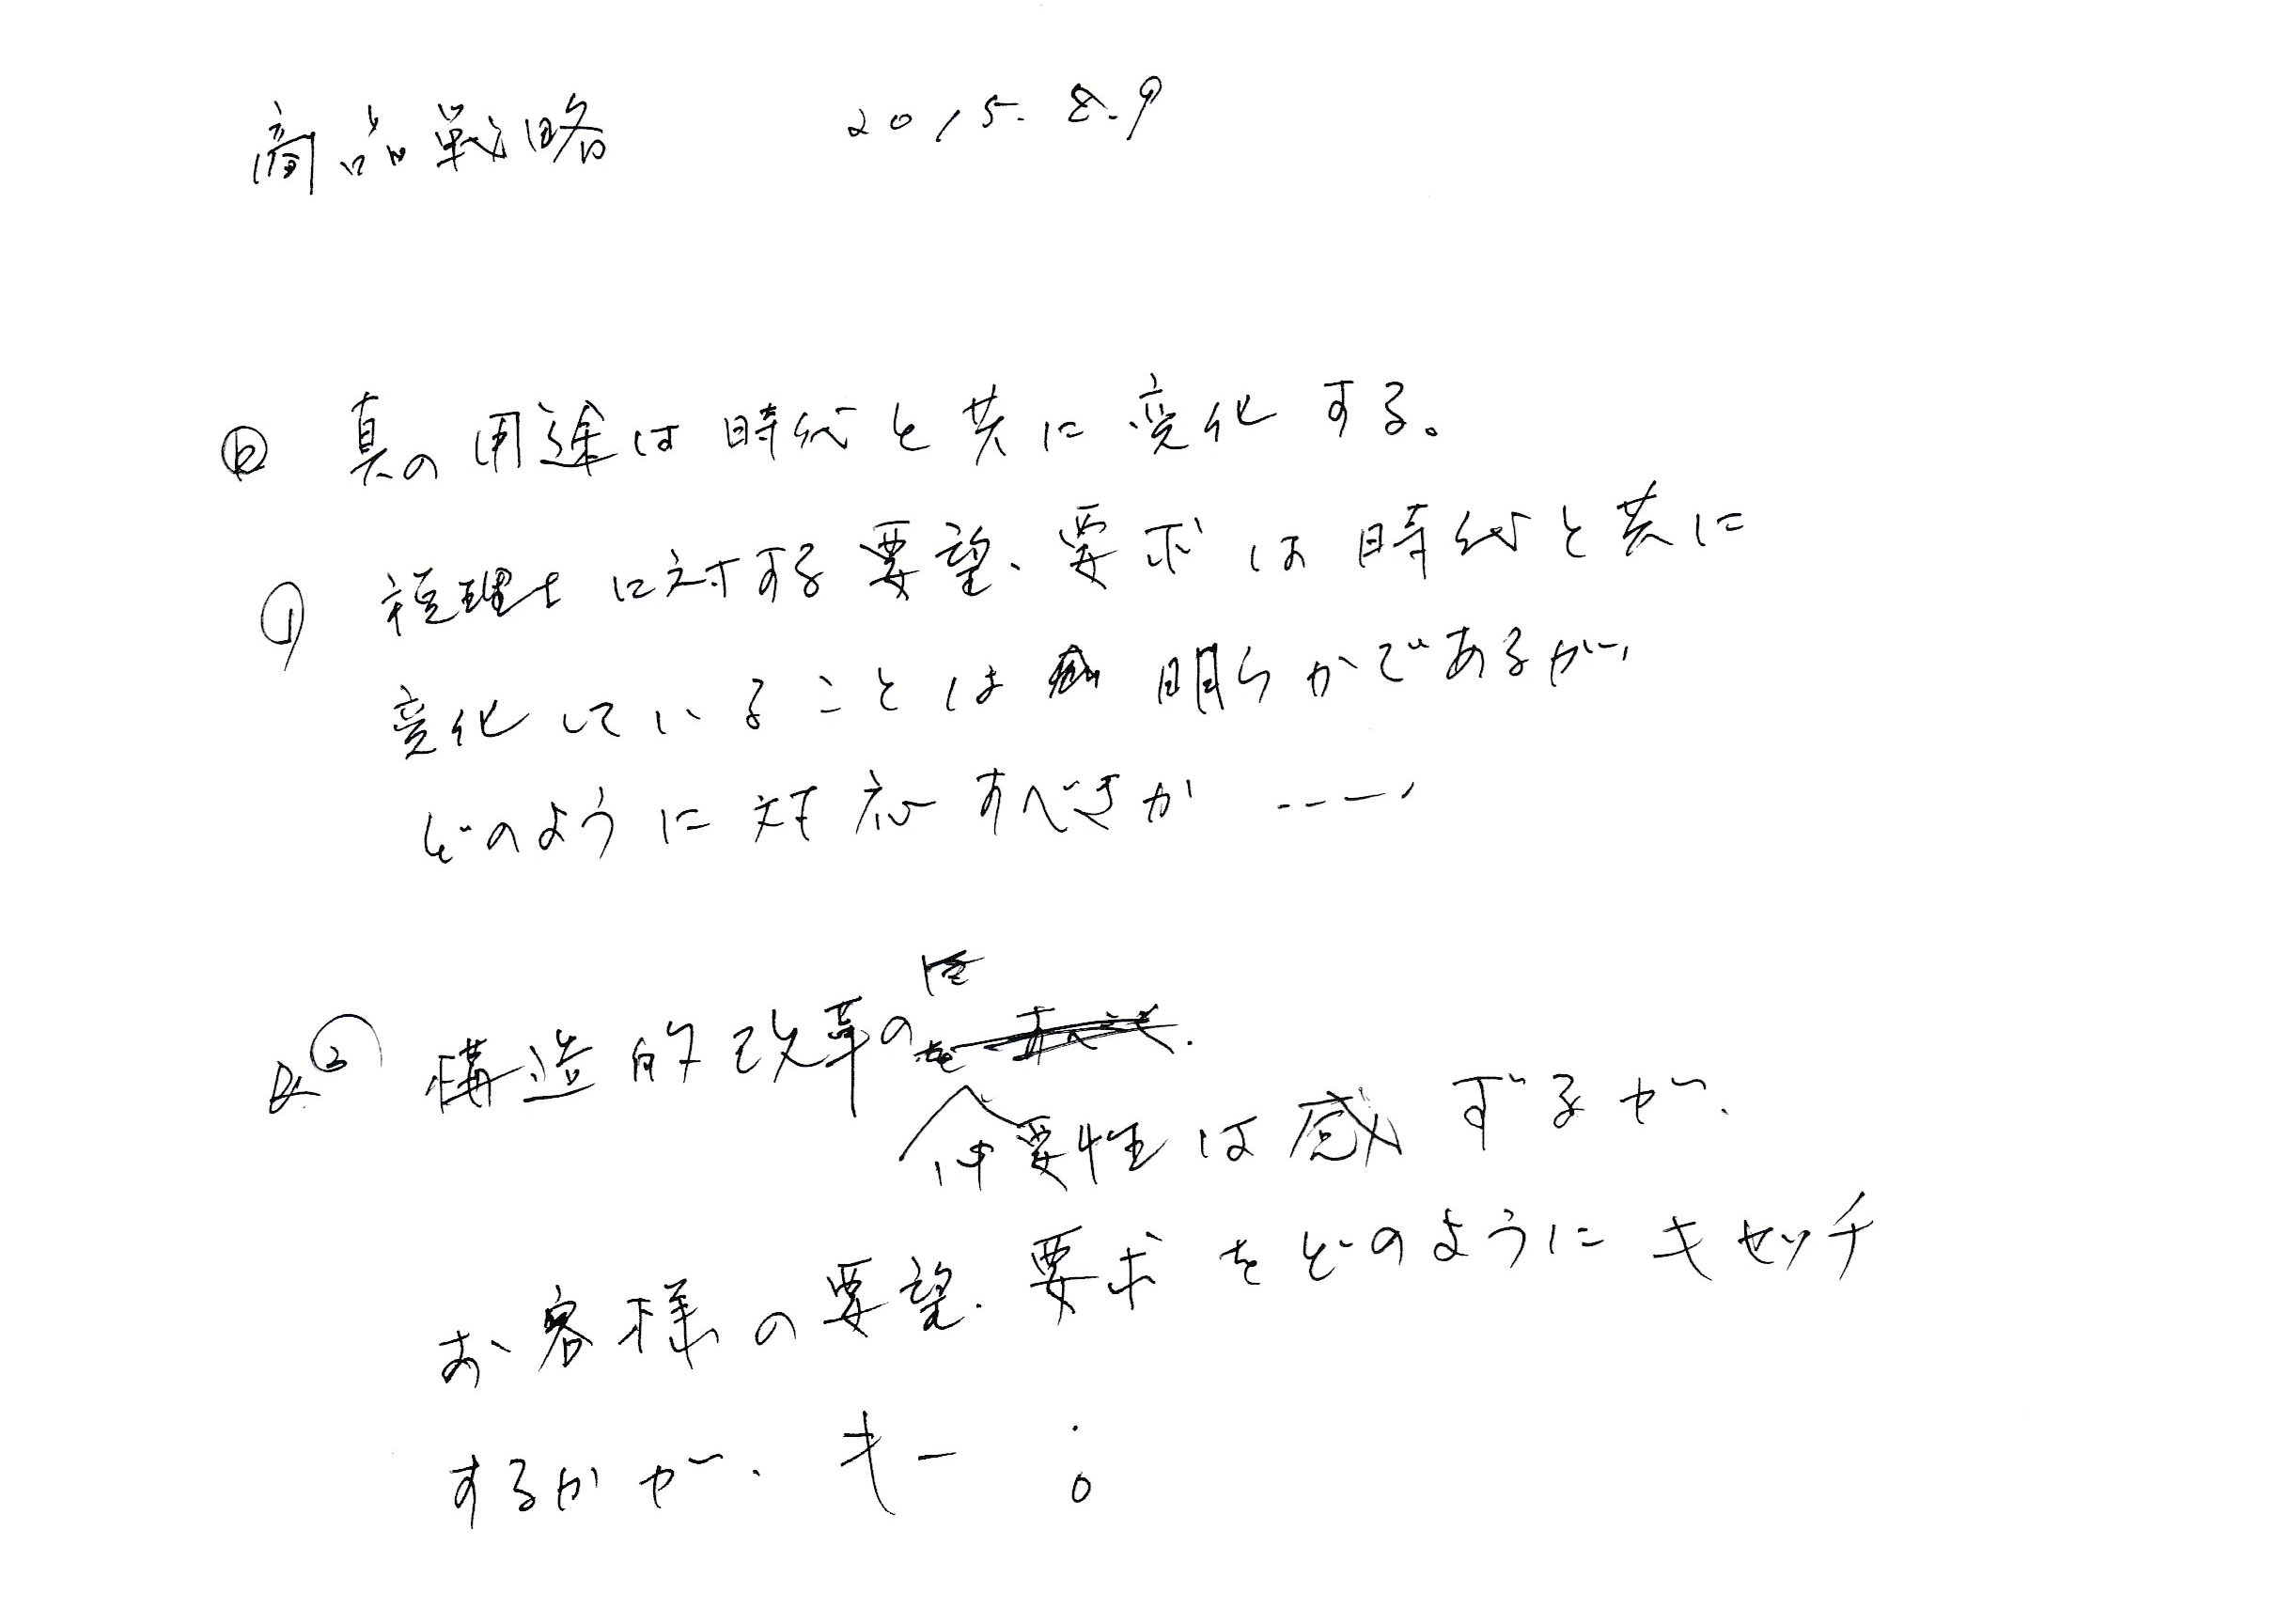 商品戦略 2015.8.9
真の用途は時代と共に変化する。
① 税理士に対する要望、要求は時代と共に
変化していることは 明らかであるが、
どのように対応すべきか ----,
② 構造的改革の
要性は感ずるが、
お客様の要望、要求をどのようにキャッチ
するかが、キー